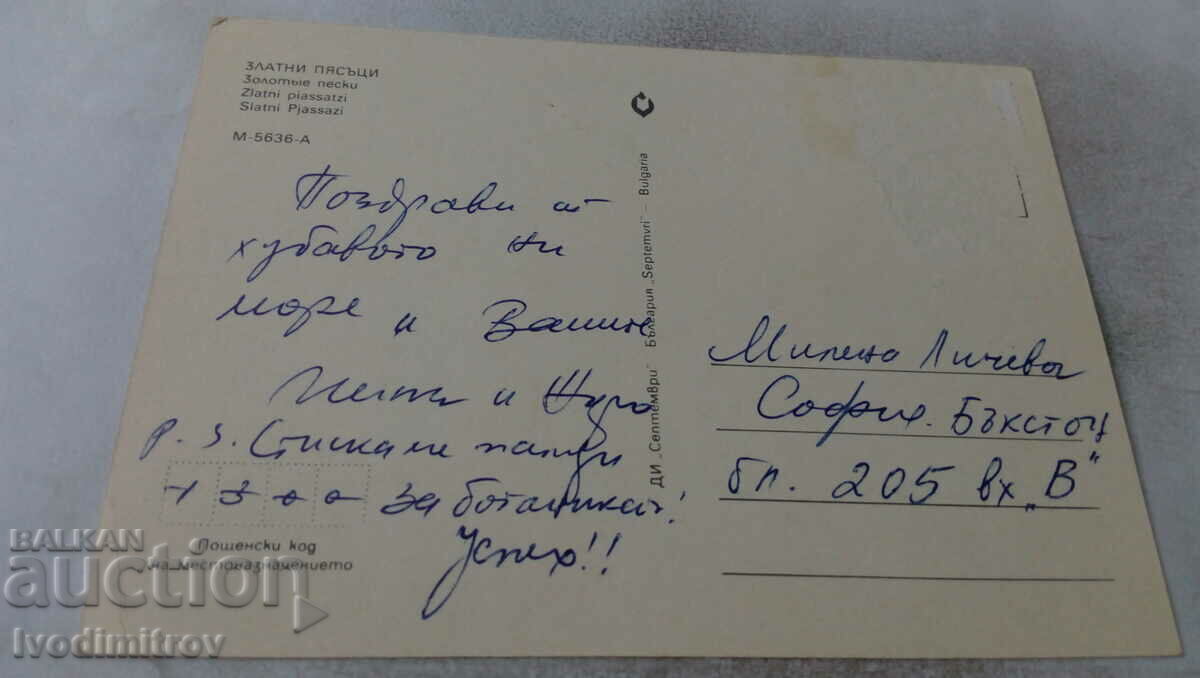 ЗЛАТНИ ПЯСЪЦИ
Золотые пески
Zlatni piassatzi
Slatni Pjassazi
М-5636-А
Поздрави от
хубавото ни
море и Вашите
и
P.S. Стискаме палци
за ботаниката!
Успех!!
Пощенски код
на местоназначението
ДИ „Септември" България „Septemvri" — Bulgaria
Милена Личева
София. Бъкстон
бл. 205 вх „В"
BALKAN
auction
Ivodimitrov